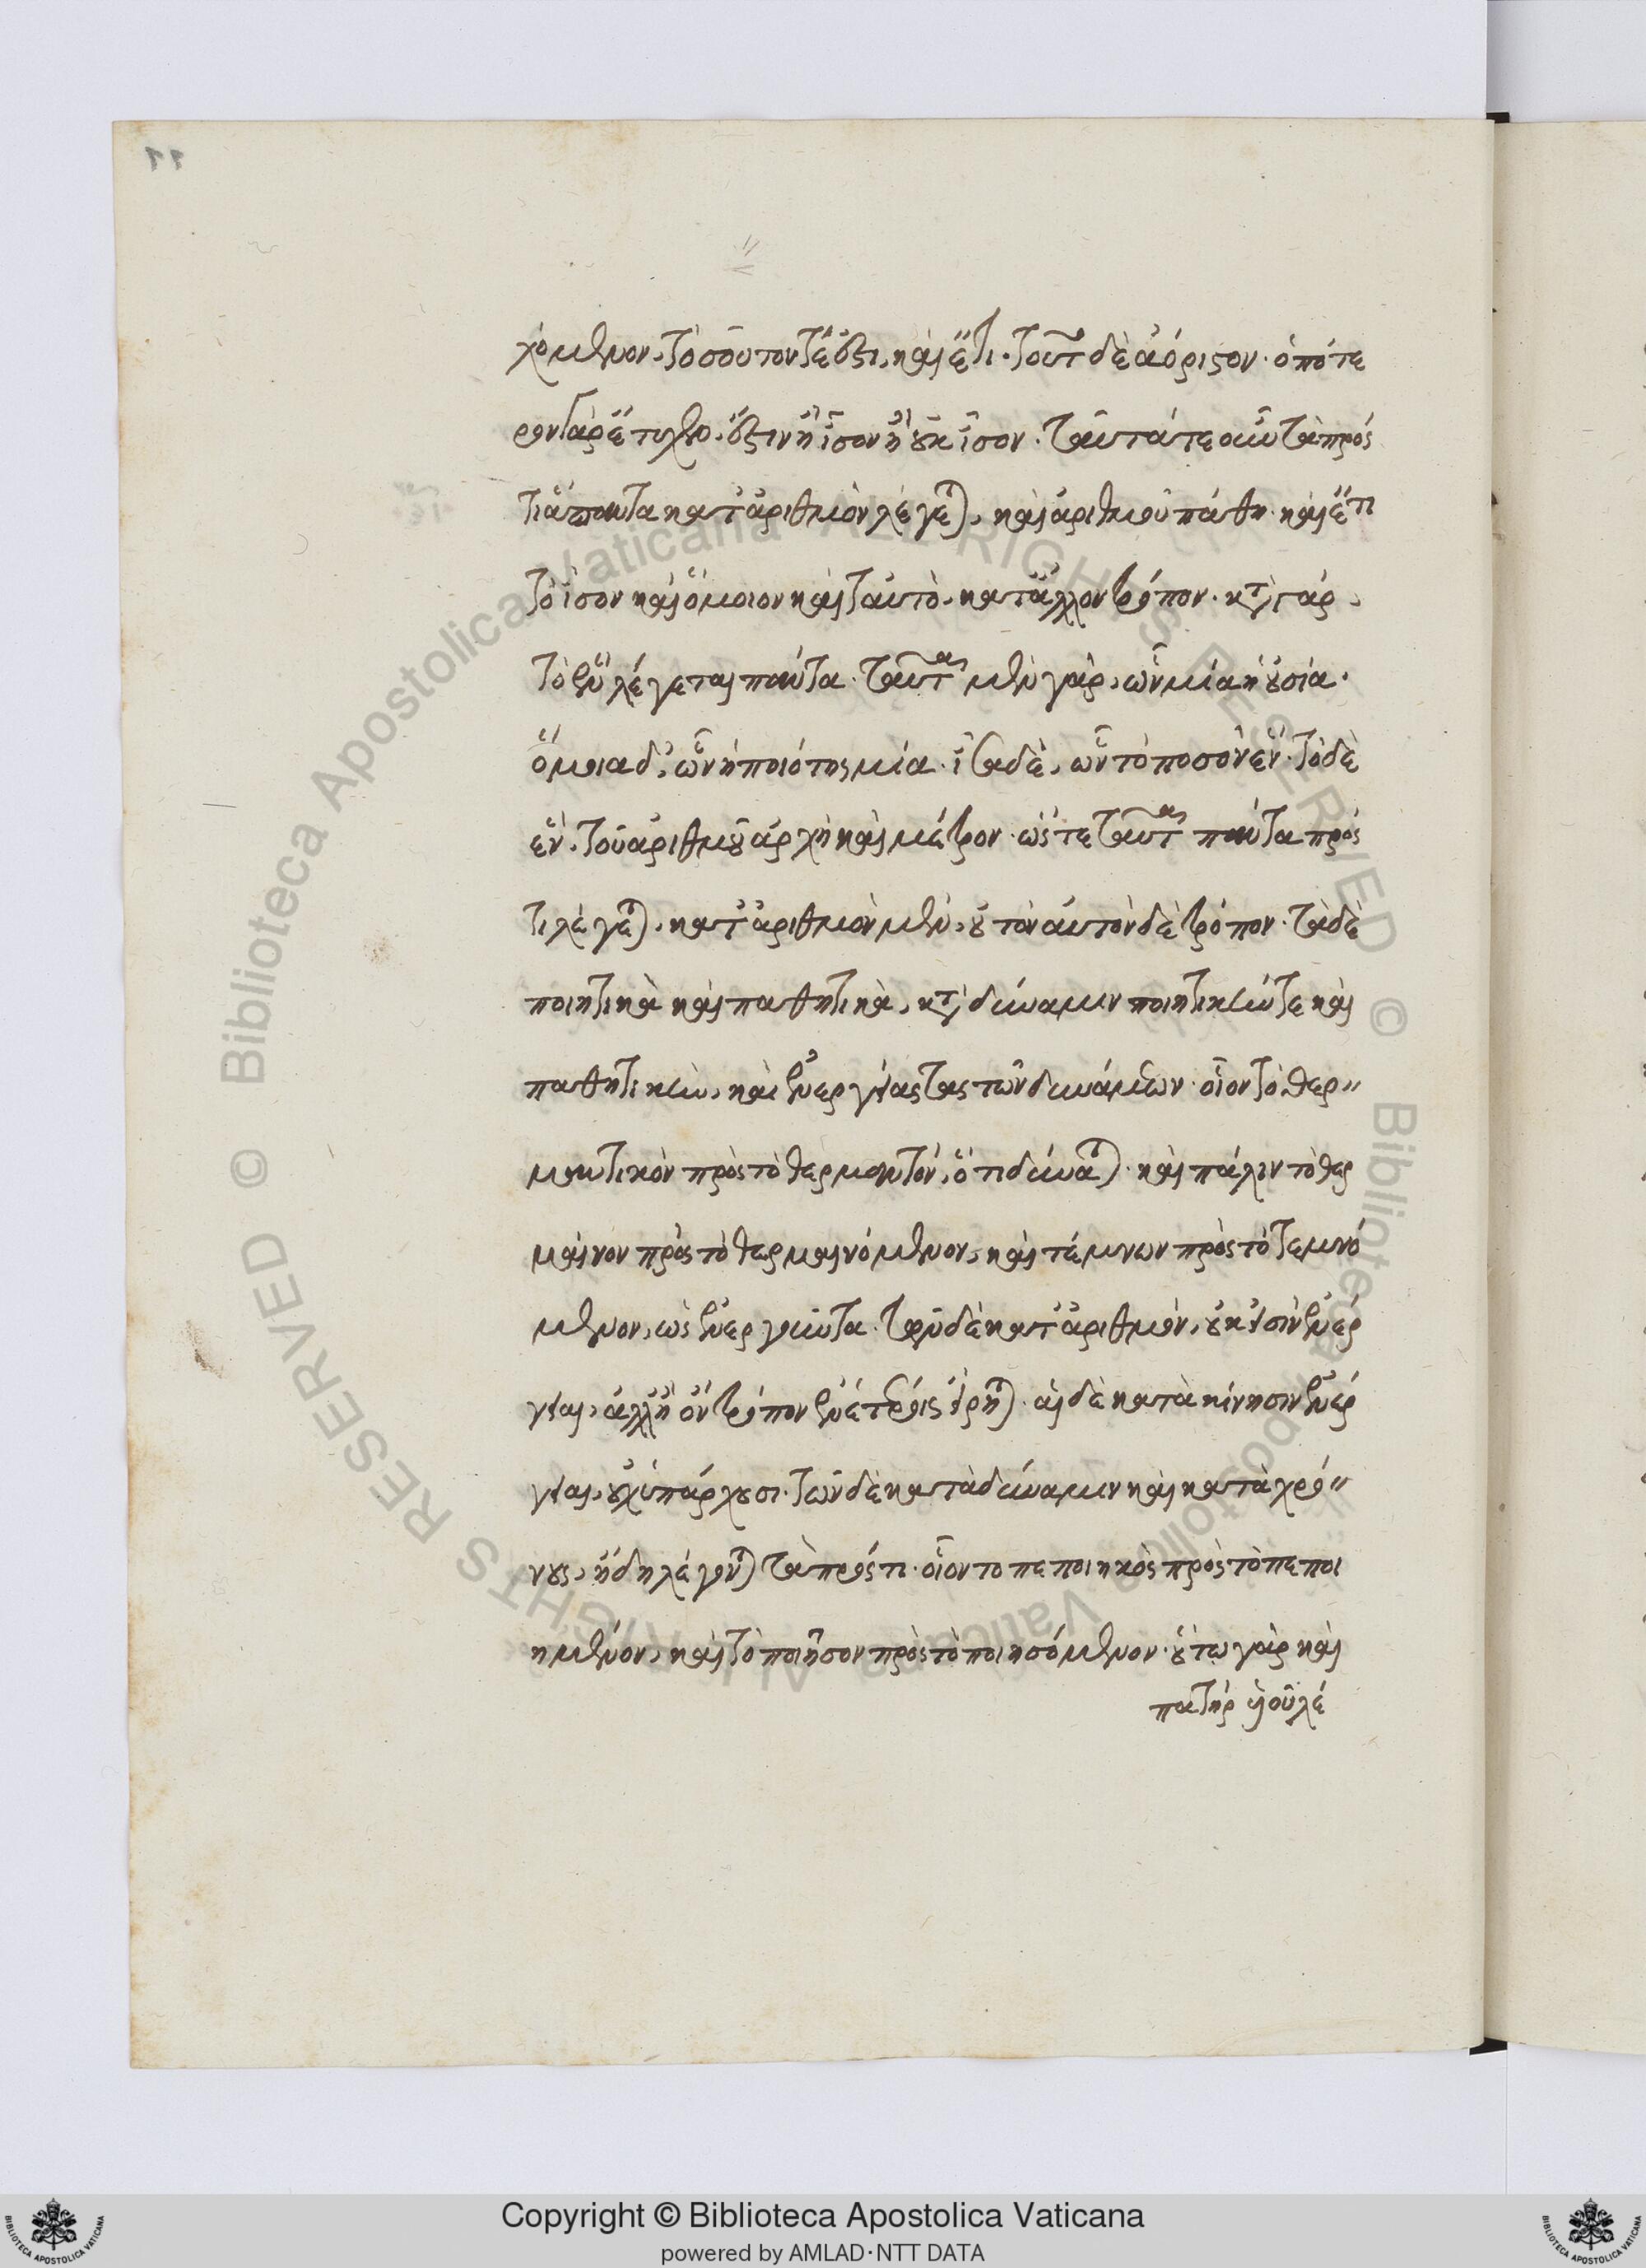 χόμενον, τοσοῦτον τέ ἐστι, καὶ ἔτι. τοῦτο δὲ ἀόριστον. ὁπότε
ρον γὰρ ἔτυχεν, ἔστιν ἢ ἴσον ἢ οὐκ ἴσον. ταῦτά τε οὖν τὰ πρός
τι ἅπαντα κατ' ἀριθμὸν λέγεται, καὶ ἀριθμοῦ πάθη. καὶ ἔτι
τὸ ἴσον καὶ ὅμοιον καὶ ταὐτὸ, κατ' ἄλλον τρόπον. κατὰ γάρ,
τὸ ἓν λέγεται πάντα. ταῦτα μὲν γὰρ, ὧν μία ἡ οὐσία.
ὅμοια δ', ὧν ἡ ποιότης μία. ἴσα δὲ, ὧν τὸ ποσὸν ἕν. τὸ δὲ
ἓν, τοῦ ἀριθμοῦ ἀρχὴ καὶ μέτρον. ὥστε ταῦτα πάντα πρός
τι λέγεται, κατ' ἀριθμὸν μὲν, οὐ τὸν αὐτὸν δὲ τρόπον. τὰ δὲ
ποιητικὰ καὶ παθητικὰ, κατὰ δύναμιν ποιητικήν τε καὶ
παθητικὴν, καὶ ἐνεργείας τὰς τῶν δυνάμεων. οἷον τὸ θερ"
μαντικὸν πρὸς τὸ θερμαντόν, ὅτι δύναται. καὶ πάλιν τὸ θερ
μαῖνον πρὸς τὸ θερμαινόμενον, καὶ τέμνων πρὸς τὸ τεμνό
μενον, ὡς ἐνεργοῦντα. τῶν δὲ κατ' ἀριθμὸν, οὐκ εἰσὶν ἐνέρ
γειαι, ἀλλ' ἢ ὃν τρόπον ἐν ἑτέροις εἴρηται. αἱ δὲ κατὰ κίνησιν ἐνέρ
γειαι, οὐχ ὑπάρχουσι. τῶν δὲ κατὰ δύναμιν καὶ κατὰ χρό"
νους, ἤδη λέγονται τὰ πρός τι. οἷον το πεποιηκὸς πρὸς τὸ πεποι
ημένον, καὶ τὸ ποιῆσον πρὸς τὸ ποιησόμενον. οὕτω γὰρ καὶ
πατὴρ υἱοῦ λέ
Copyright © Biblioteca Apostolica Vaticana
powered by AMLAD·NTT DATA
© Biblioteca Apostolica Vaticana ALL RIGHTS RESERVED © Biblioteca Apostolica Vaticana ALL RIGHTS RESERVED